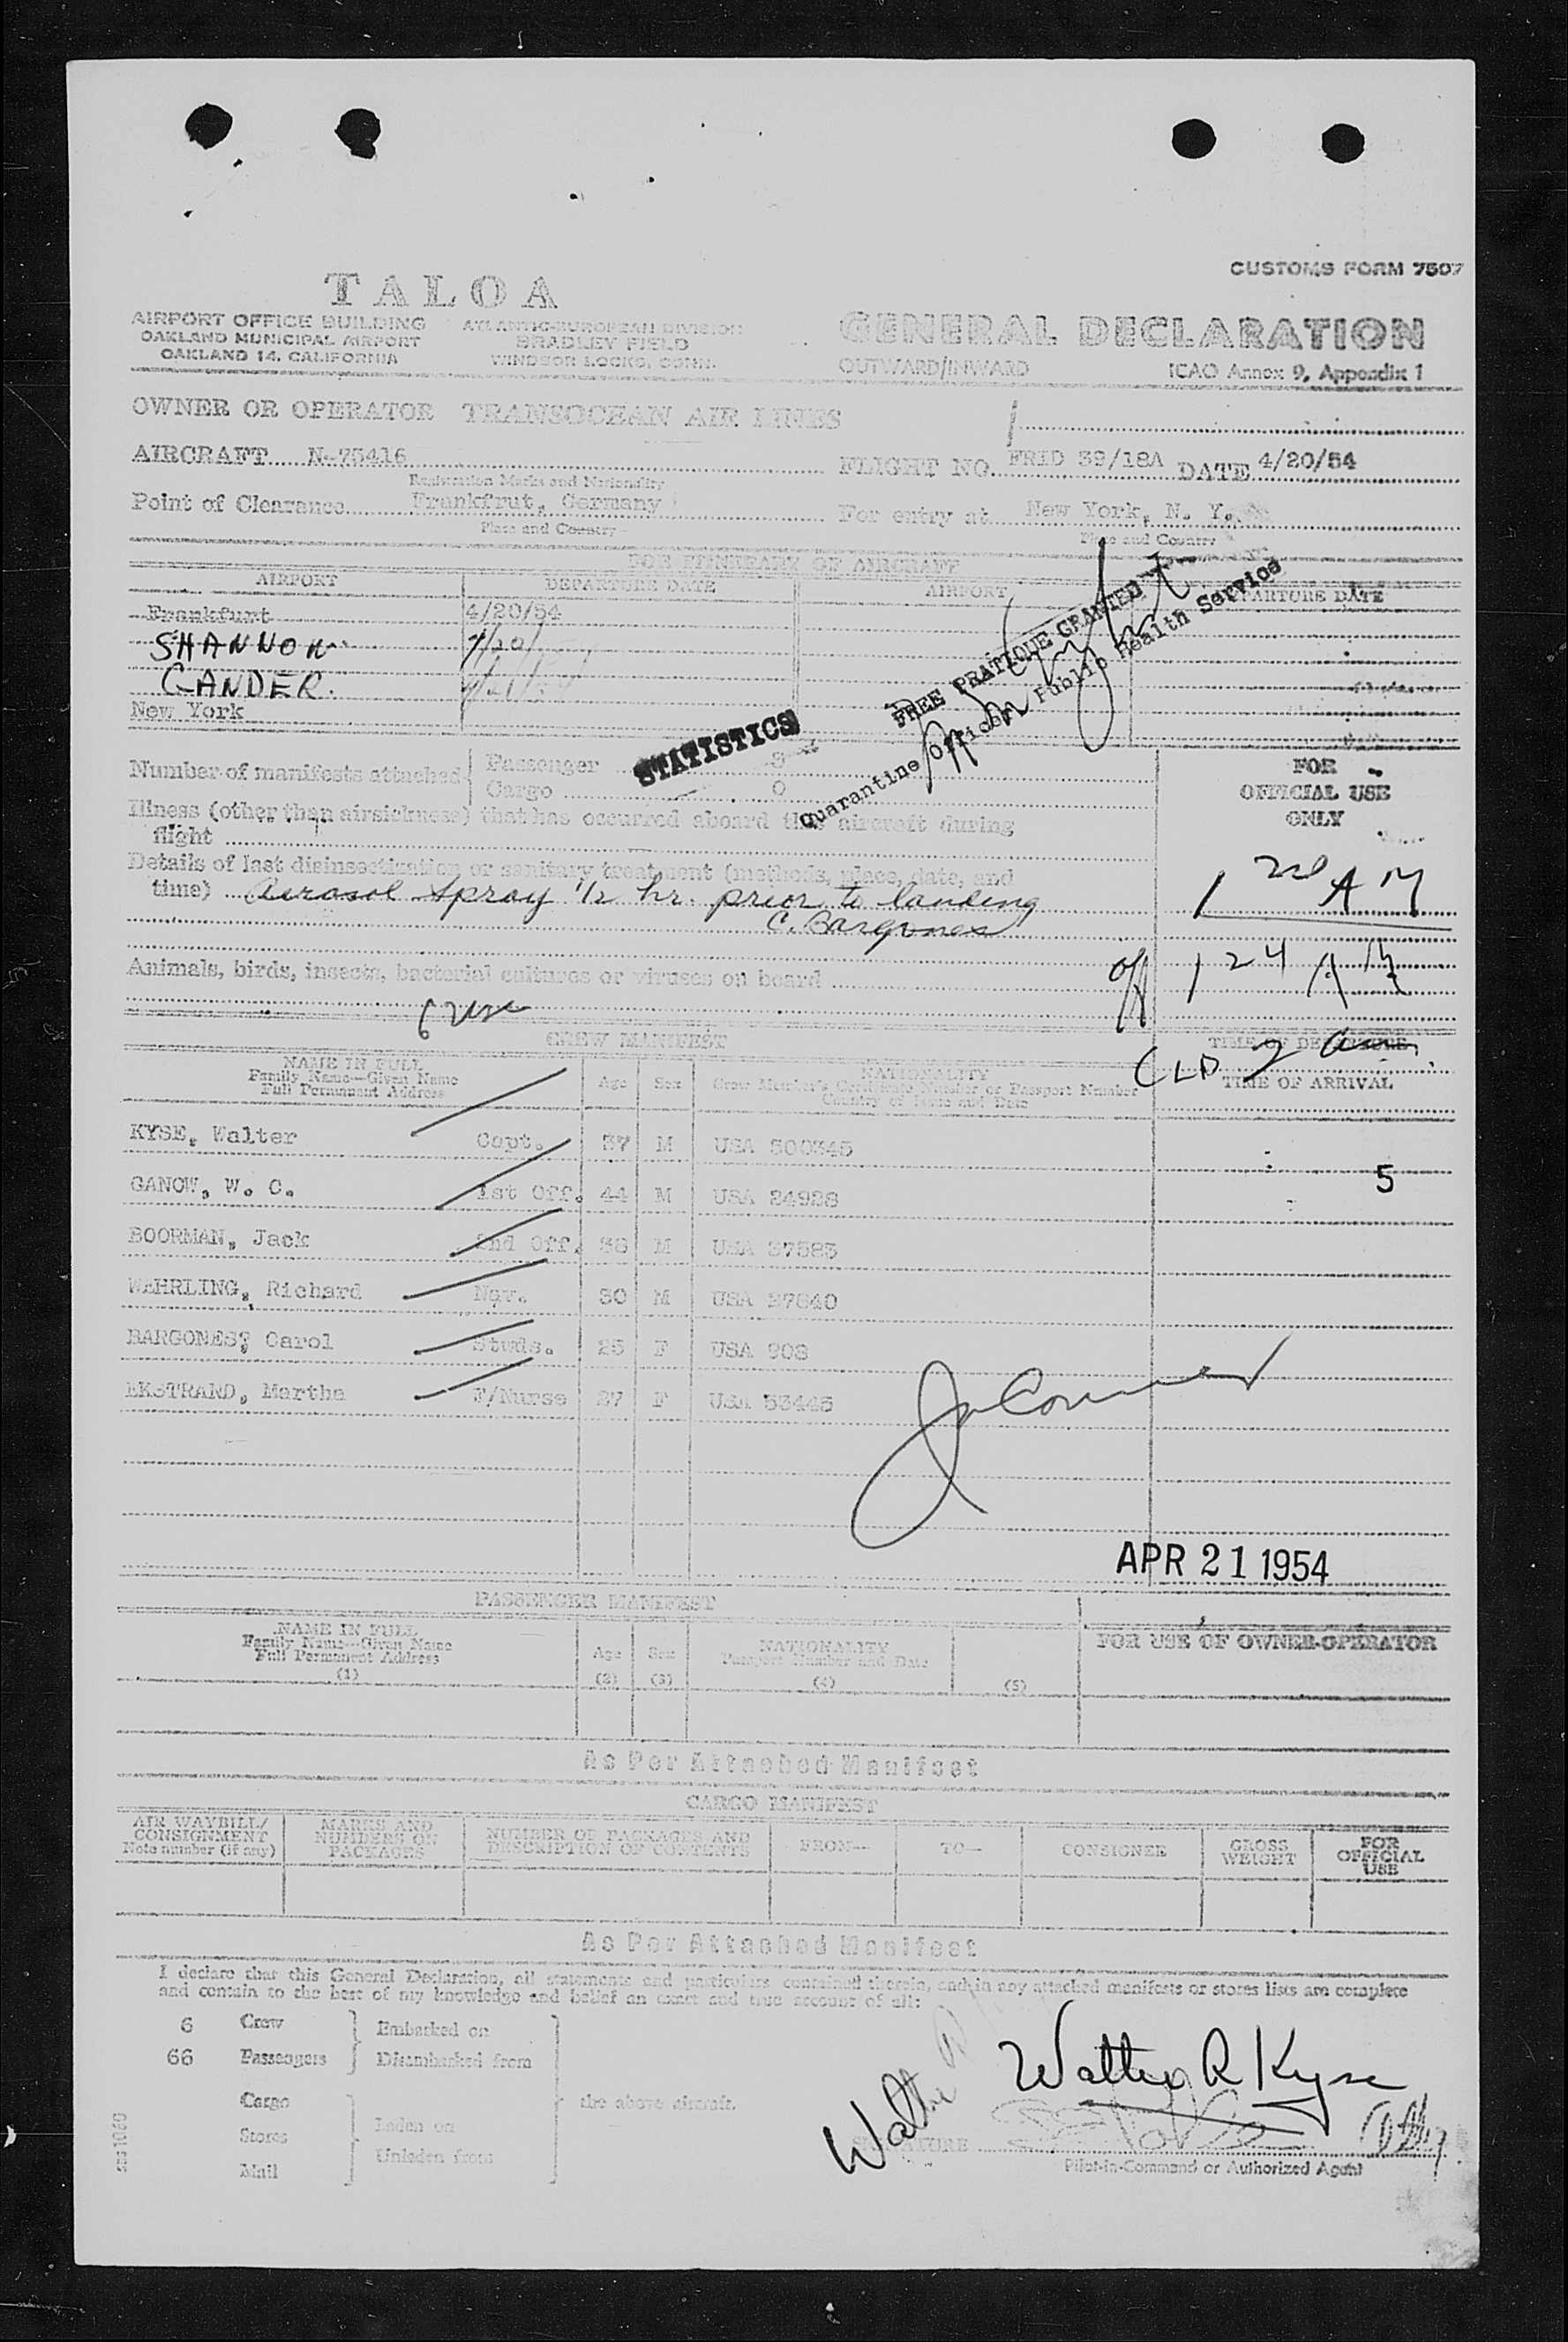 CUSTOMS FORM 7507
TALOA
AIRPORT OFFICE BUILDING
OAKLAND MUNICIPAL AIRPORT
OAKLAND 14, CALIFORNIA
ATLANTIC-EUROPEAN DIVISION
BRADLEY FIELD
WINDSOR LOCKS, CONN.
GENERAL DECLARATION
OUTWARD/INWARD
ICAO Annex 9, Appendix 1
OWNER OR OPERATOR TRANSOCEAN AIR LINES
AIRCRAFT N-75416
Registration Marks and Nationality
FLIGHT NO. FRID 39/18A DATE 4/20/54
Point of Clearance Frankfrut, Germany
Place and Country
For entry at New York, N. Y.
Place and Country
FOR ITINERARY OF AIRCRAFT
AIRPORT DEPARTURE DATE AIRPORT DEPARTURE DATE
Frankfurt 4/20/54
SHANNON 4/20/
GANDER.
New York
FREE PRATIQUE GRANTED
Quarantine Officer, Public Health Service
STATISTICS
Number of manifests attached
Passenger
Cargo 0
FOR
OFFICIAL USE
ONLY
Illness (other than airsickness) that has occurred aboard this aircraft during
flight
Details of last disinsectization or sanitary treatment (methods, place, date, and
time) Aerosol Spray 1/2 hr. prior to landing
C. Bargones
Animals, birds, insects, bacterial cultures or viruses on board
off 1 24 AM
CREW MANIFEST
TIME OF DEPARTURE
TIME OF ARRIVAL
NAME IN FULL
Family Name—Given Name
Full Permanent Address
Age Sex
NATIONALITY
Crew Member's Certificate Number or Passport Number
Country of Issue and Date
KYSE, Walter Capt. 37 M USA 500345
GANOW, W. C. 1st Off. 44 M USA 24928
5
BOORMAN, Jack 2nd Off. 38 M USA 37583
WEHRLING, Richard Nav. 30 M USA 37640
BARGONES, Carol Stwds. 25 F USA 908
EKSTRAND, Martha F/Nurse 27 F USA 53445
APR 21 1954
PASSENGER MANIFEST
NAME IN FULL
Family Name—Given Name
Full Permanent Address
(1)
Age
(2)
Sex
(3)
NATIONALITY
Passport Number and Date
(4)
(5)
FOR USE OF OWNER-OPERATOR
As Per Attached Manifest
CARGO MANIFEST
AIR WAYBILL/
CONSIGNMENT
Note number (if any)
MARKS AND
NUMBERS ON
PACKAGES
NUMBER OF PACKAGES AND
DESCRIPTION OF CONTENTS
FROM—
TO—
CONSIGNEE
GROSS
WEIGHT
FOR
OFFICIAL
USE
As Per Attached Manifest
I declare that this General Declaration, all statements and particulars contained therein, and in any attached manifests or stores lists are complete
and contain to the best of my knowledge and belief an exact and true account of all:
6 Crew
66 Passengers
Embarked on
Disembarked from
Cargo
Stores
Mail
Laden on
Unladen from
the above aircraft.
Walter R Kyse
SIGNATURE
Pilot-in-Command or Authorized Agent